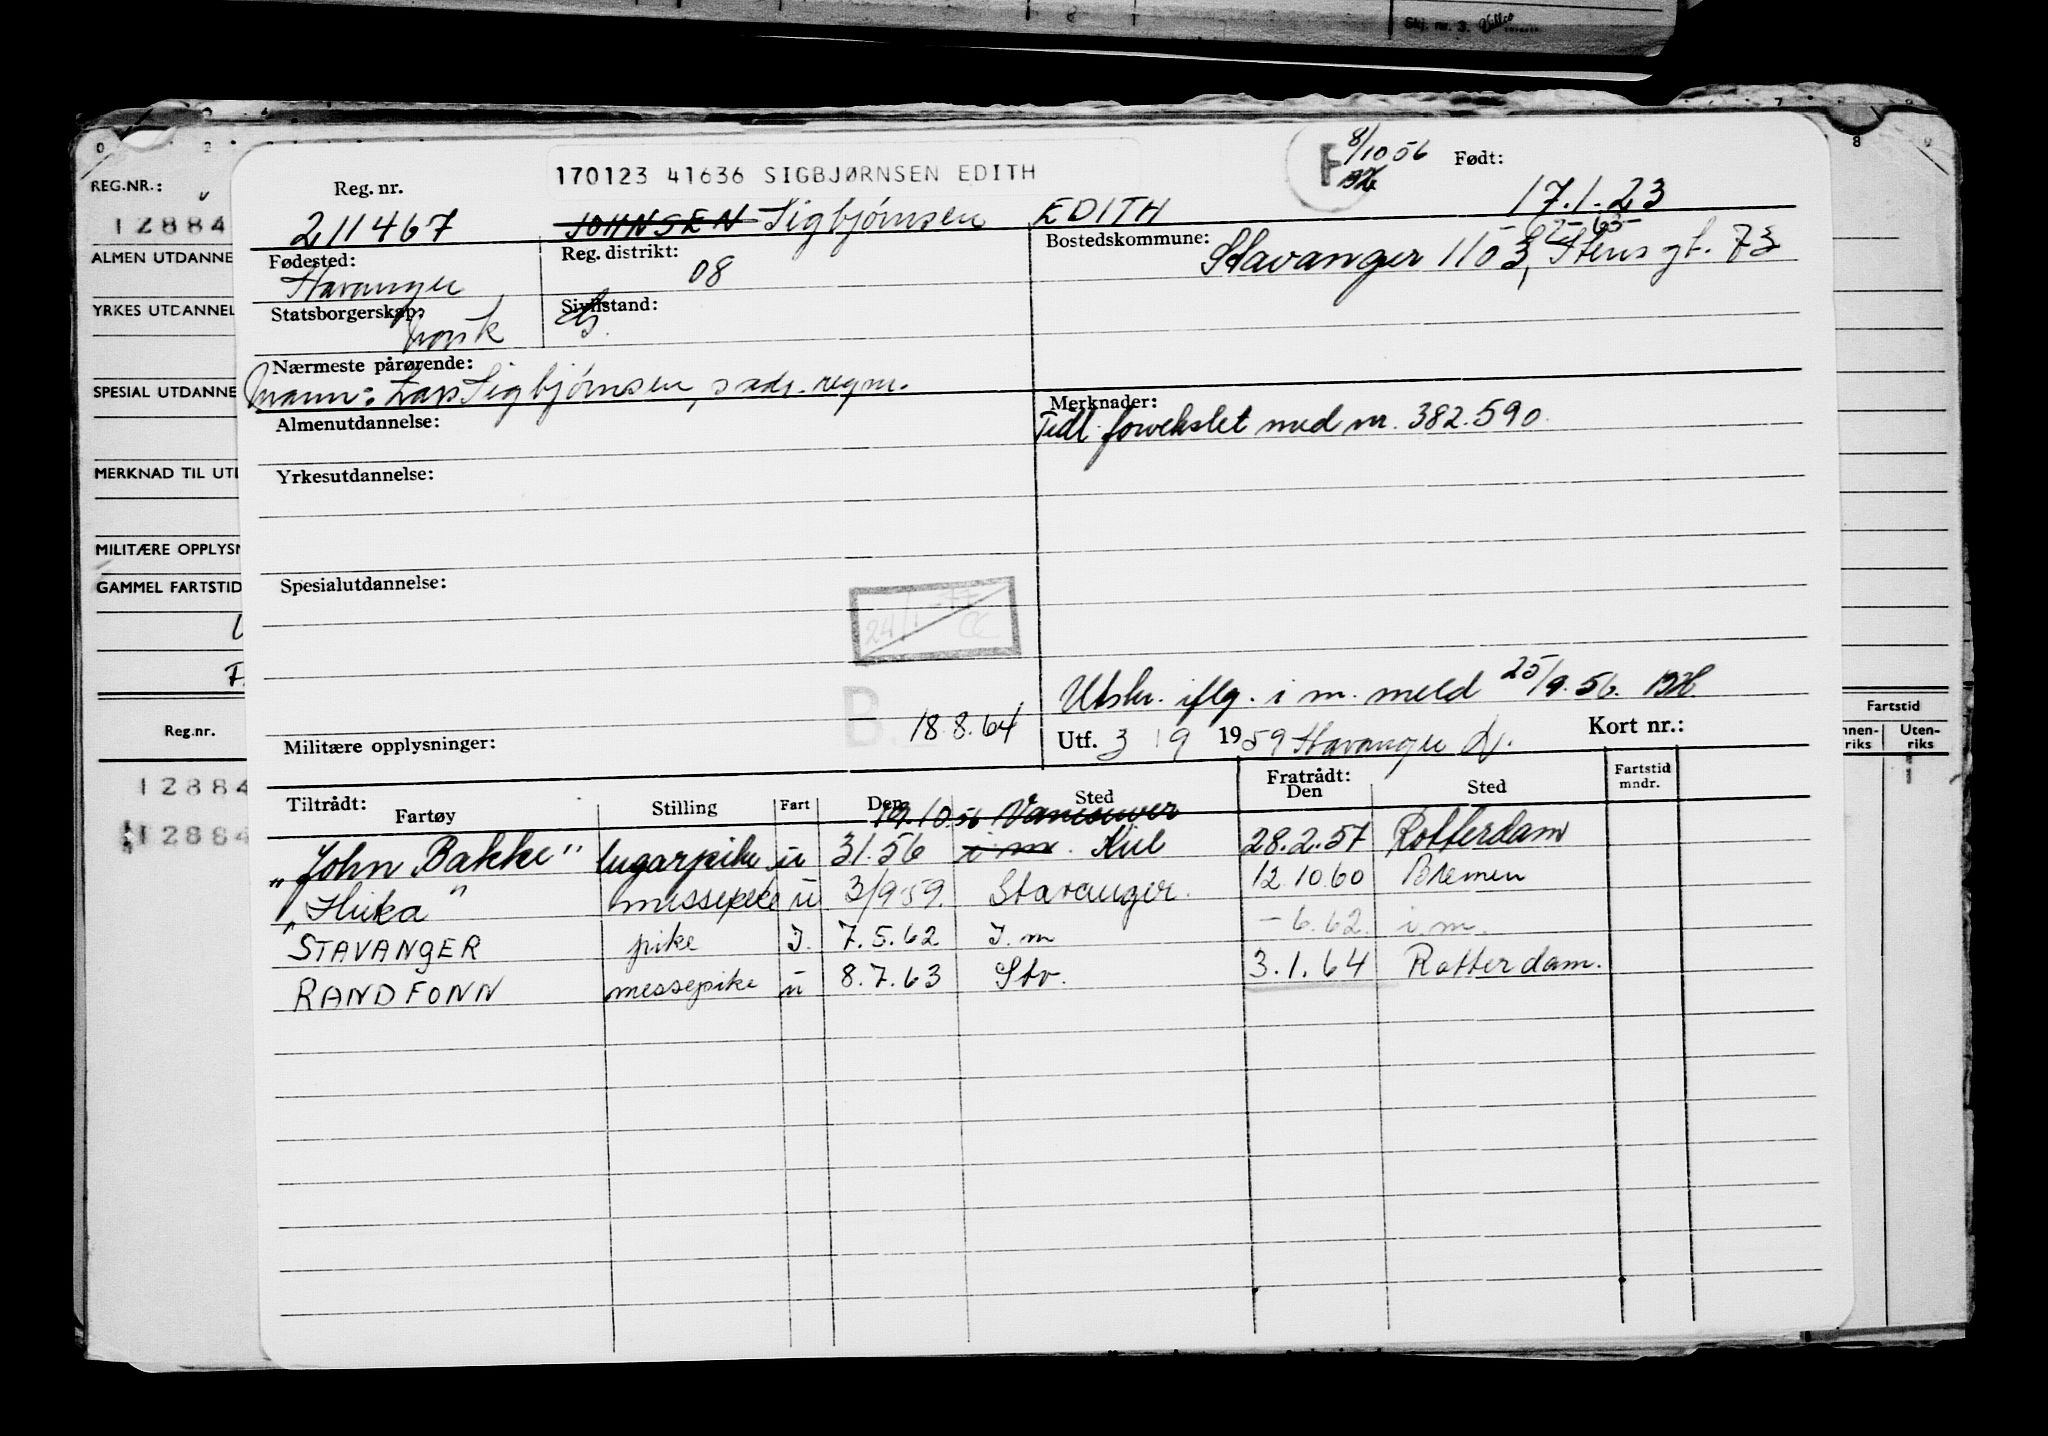 Skj. nr. 3.
170123 41636 SIGBJØRNSEN EDITH
F 8/10 56
Født:
17.1.23
Reg. nr.
211467
JOHNSEN Sigbjørnsen EDITH
Fødested:
Stavanger
Reg. distrikt:
08
Bostedskommune:
Stavanger 1103, Stens gt. 73
Statsborgerskap:
norsk
Sivilstand:
G.
Nærmeste pårørende:
Mann: Lars Sigbjørnsen, s adr. reg nr.
Almenutdannelse:
Merknader:
Tidl. forvekslet med nr. 382.590.
Yrkesutdannelse:
Spesialutdannelse:
24/1-77
CC
Utskr. iflg. i m. meld 25/9.56.
B
18.8.64
Militære opplysninger:
Utf. 3 / 9 1959 Stavanger
Kort nr.:
Tiltrådt:
Fartøy Stilling Fart Den Sted
Fratrådt:
Den Sted
Fartstid
mndr.
19.10.56 Vancouver
"John Bakke" lugarpike u 31.56 i m. Kiel 28.2.57 Rotterdam
messepike u 3/9 59. Stavanger. 12.10.60 Bremen
STAVANGER pike I. 7.5.62 I. m - 6.62. i.m.
RANDFONN messepike u 8.7.63 Stv. 3.1.64 Rotterdam.
REG.NR.:
12884
ALMEN UTDANNE
YRKES UTDANNEL
SPESIAL UTDANNE
MERKNAD TIL UTD
MILITÆRE OPPLYSN
GAMMEL FARTSTID
Reg.nr.
12884
12884
Fartstid
nnen-
riks
Uten-
riks